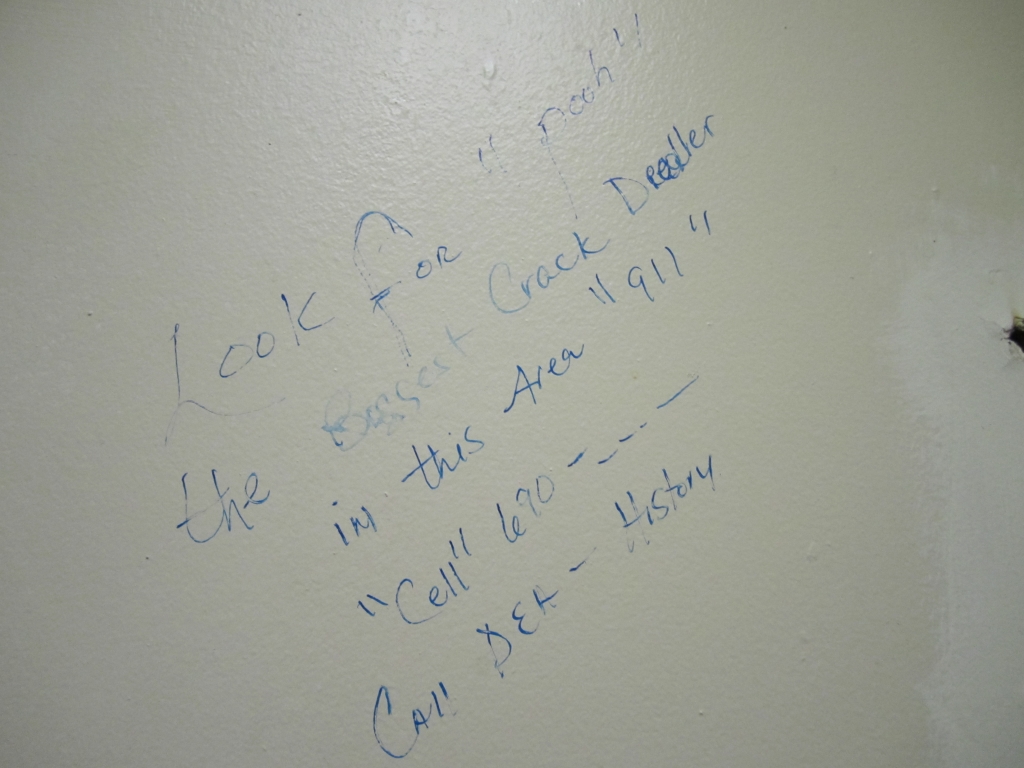 Look For "Pooh"
the Biggest Crack Dealer
in this Area "911"
"Cell" 690 - - - -
Call DEA - History